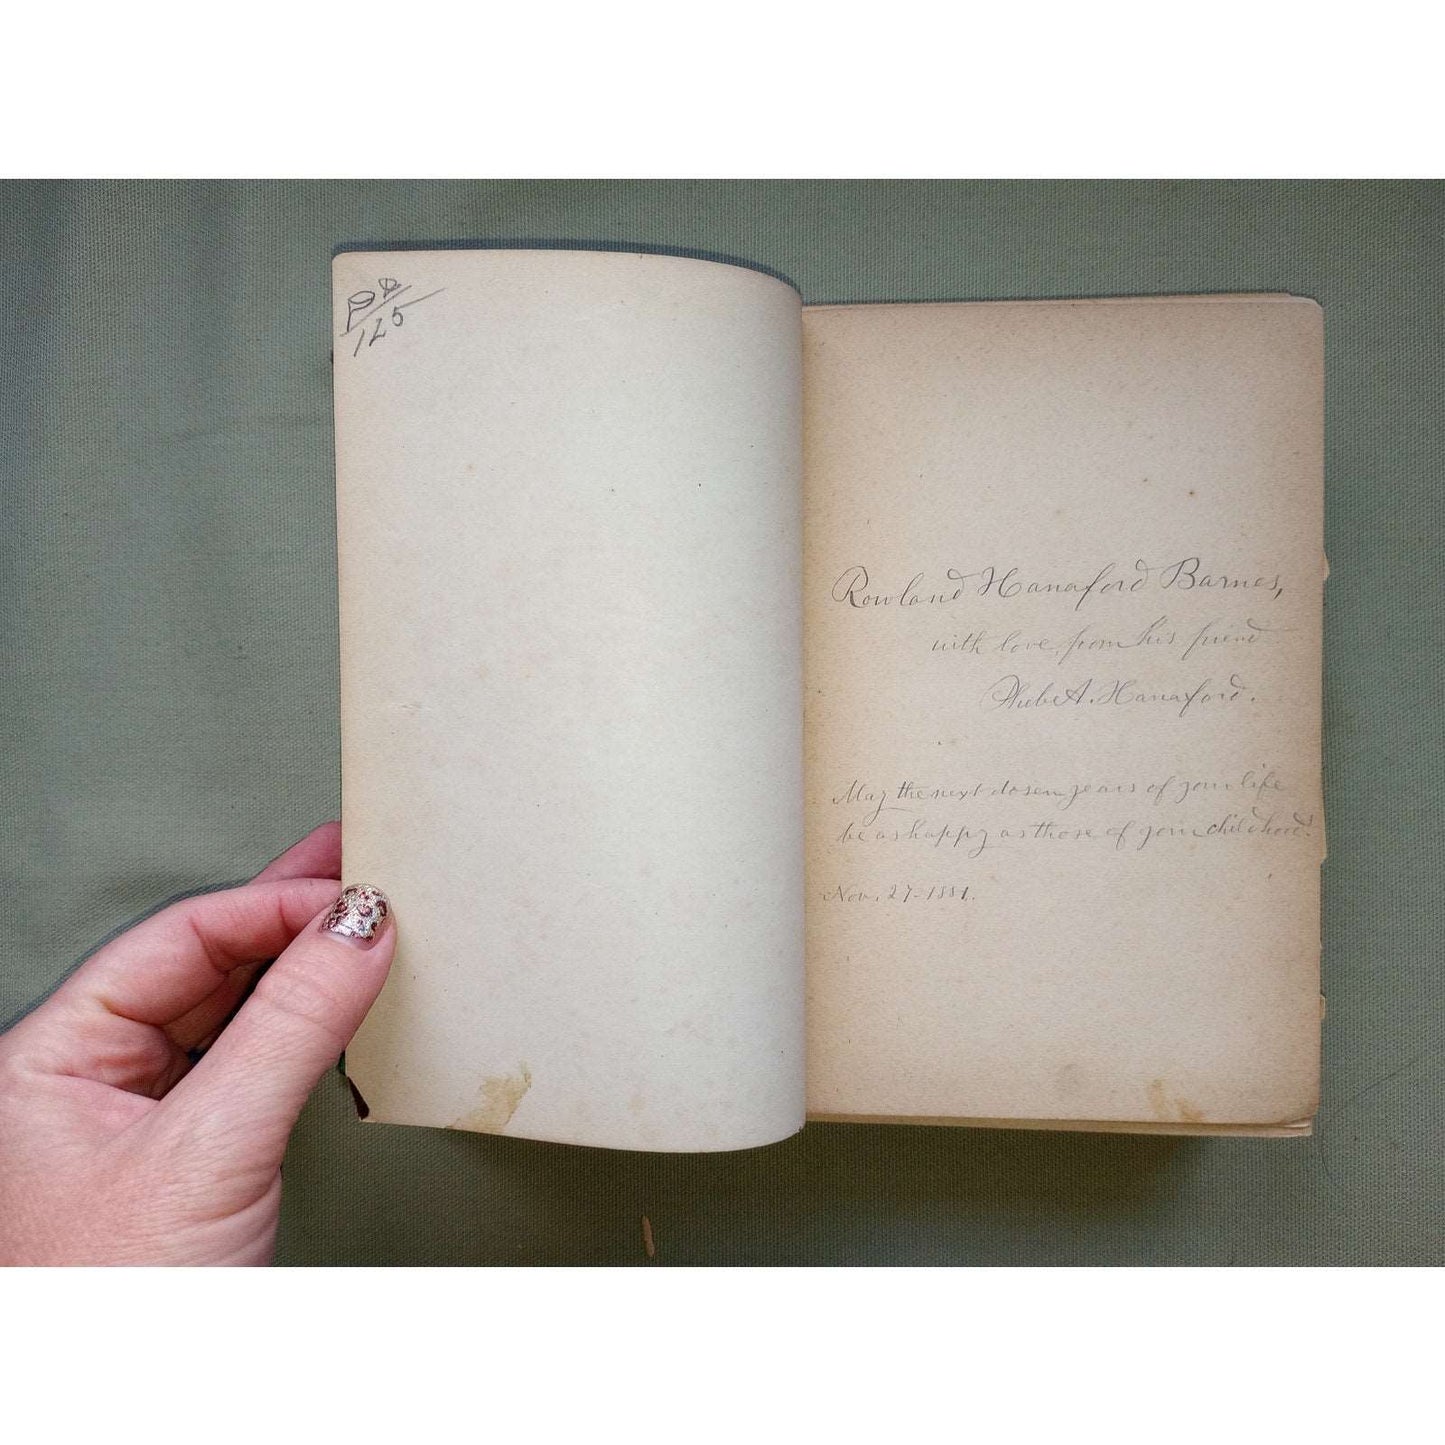 125
Rowland Hanaford Barnes,
with love from his friend
Phebe A. Hanaford.
May the next dosen years of your life
be as happy as those of your childhood!
Nov. 27-1881.